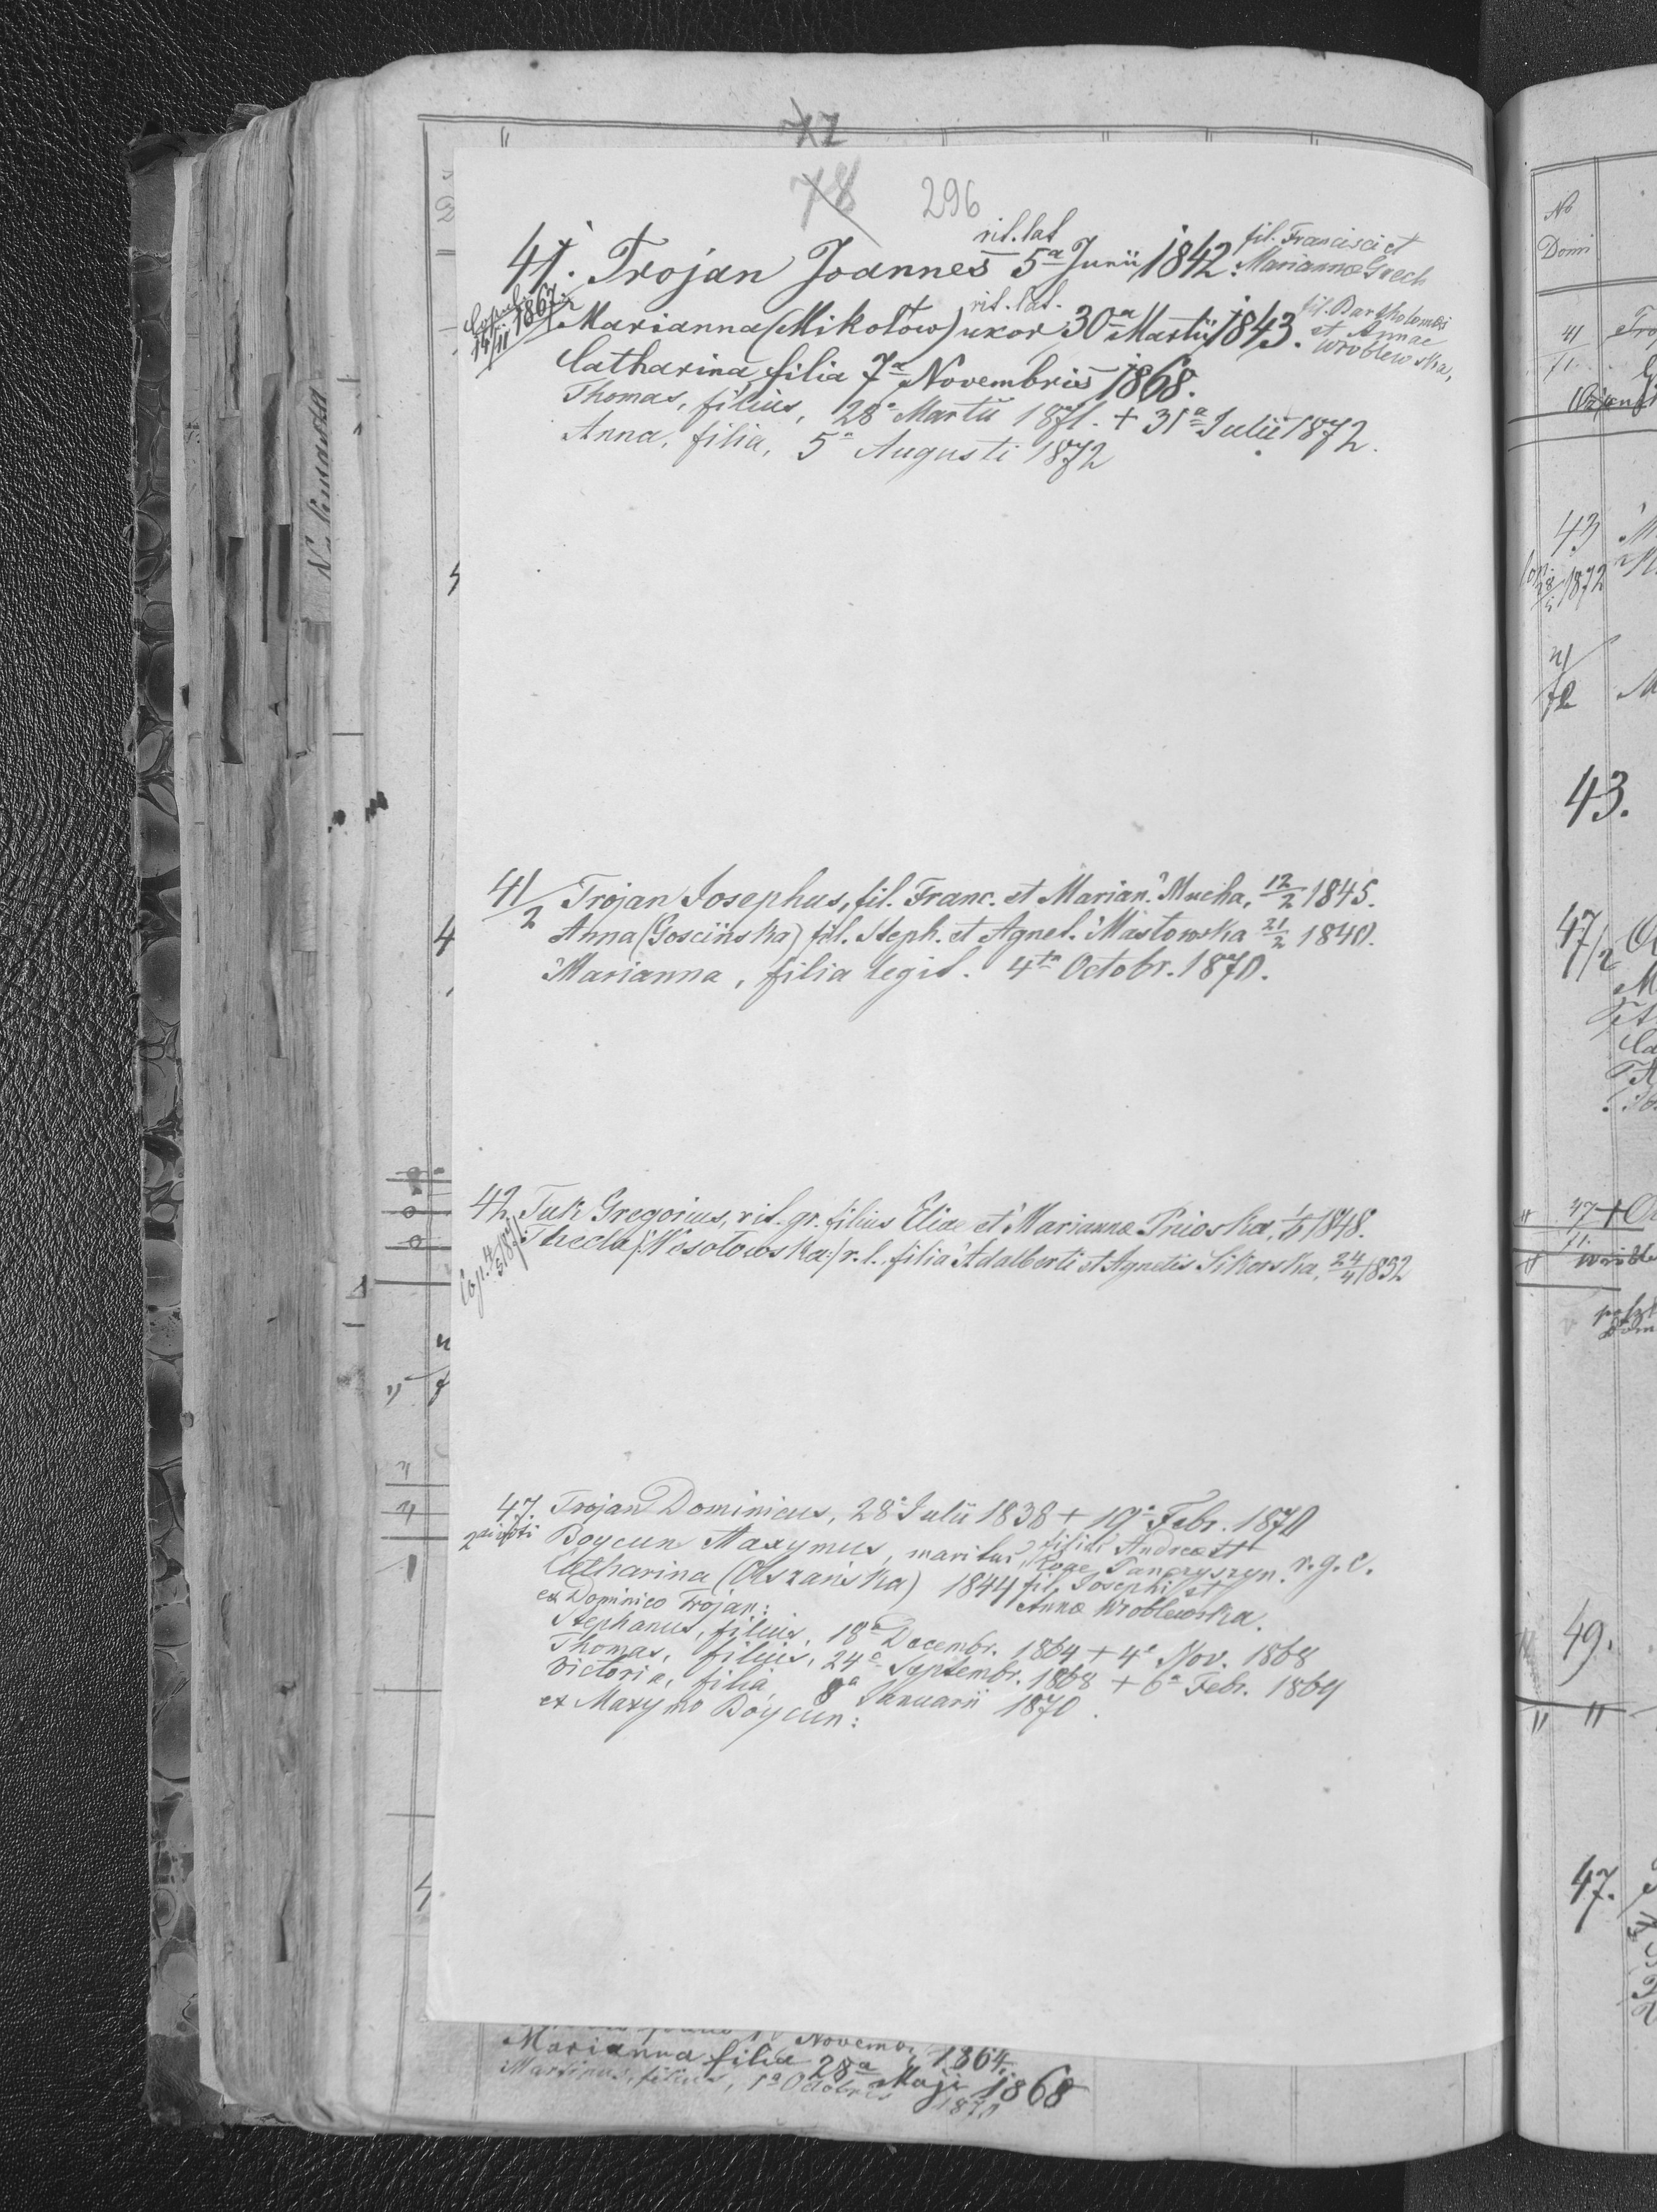 77
78 296
41. Trojan Joannes rit. lat. 5ª Junii 1842. fil. Francisci et Mariannæ Grech
Copul. 14/11 1867.
Marianna (Mikołow) uxor rit. lat. 30ª Martii 1843. fil. Bartholomei et Annae Wroblewska,
Catharina filia 7ª Novembris 1868.
Thomas, filius, 28ª Martii 1871. + 31ª Julii 1872.
Anna, filia, 5ª Augusti 1872
41/2 Trojan Josephus, fil. Franc. et Marian. Mucha, 12/2 1845.
Anna (Goscińska) fil. Steph. et Agnet. Masłowska 21/2 1840.
Marianna, filia legit. 4ta Octobr. 1870.
42 Tuk Gregorius, rit. gr. filius Eliæ et Mariannæ 1848.
Thecla /:Wesołowska:/ r. l. filia Adalberti et Agnetis Sikorska, 24/4 1832
47. Trojan Dominicus, 28ª Julii 1838 + 19ª Febr. 1870
Boycun Maxymus, maritus 2 filius Andreæ et r. g. c.
Catharina (Olszańska) 1844 fil. Josephi et Annæ Wroblewska.
ex Dominico Trojan:
Stephanus, filius, 18ª Decembr. 1864 + 4ª Nov. 1868
Thomas, filius, 24ª Septembr. 1868 + 6ª Febr. 1869
Victoria, filia, 8ª Januarii 1870.
ex Maxymo Boycun:
Novemb. 1864
Marianna filia 28ª Maji 1868
Martinus, filius, 1ª Octobris 1870
No
Domi
41
43
1872
43.
47/2
47
49.
47.